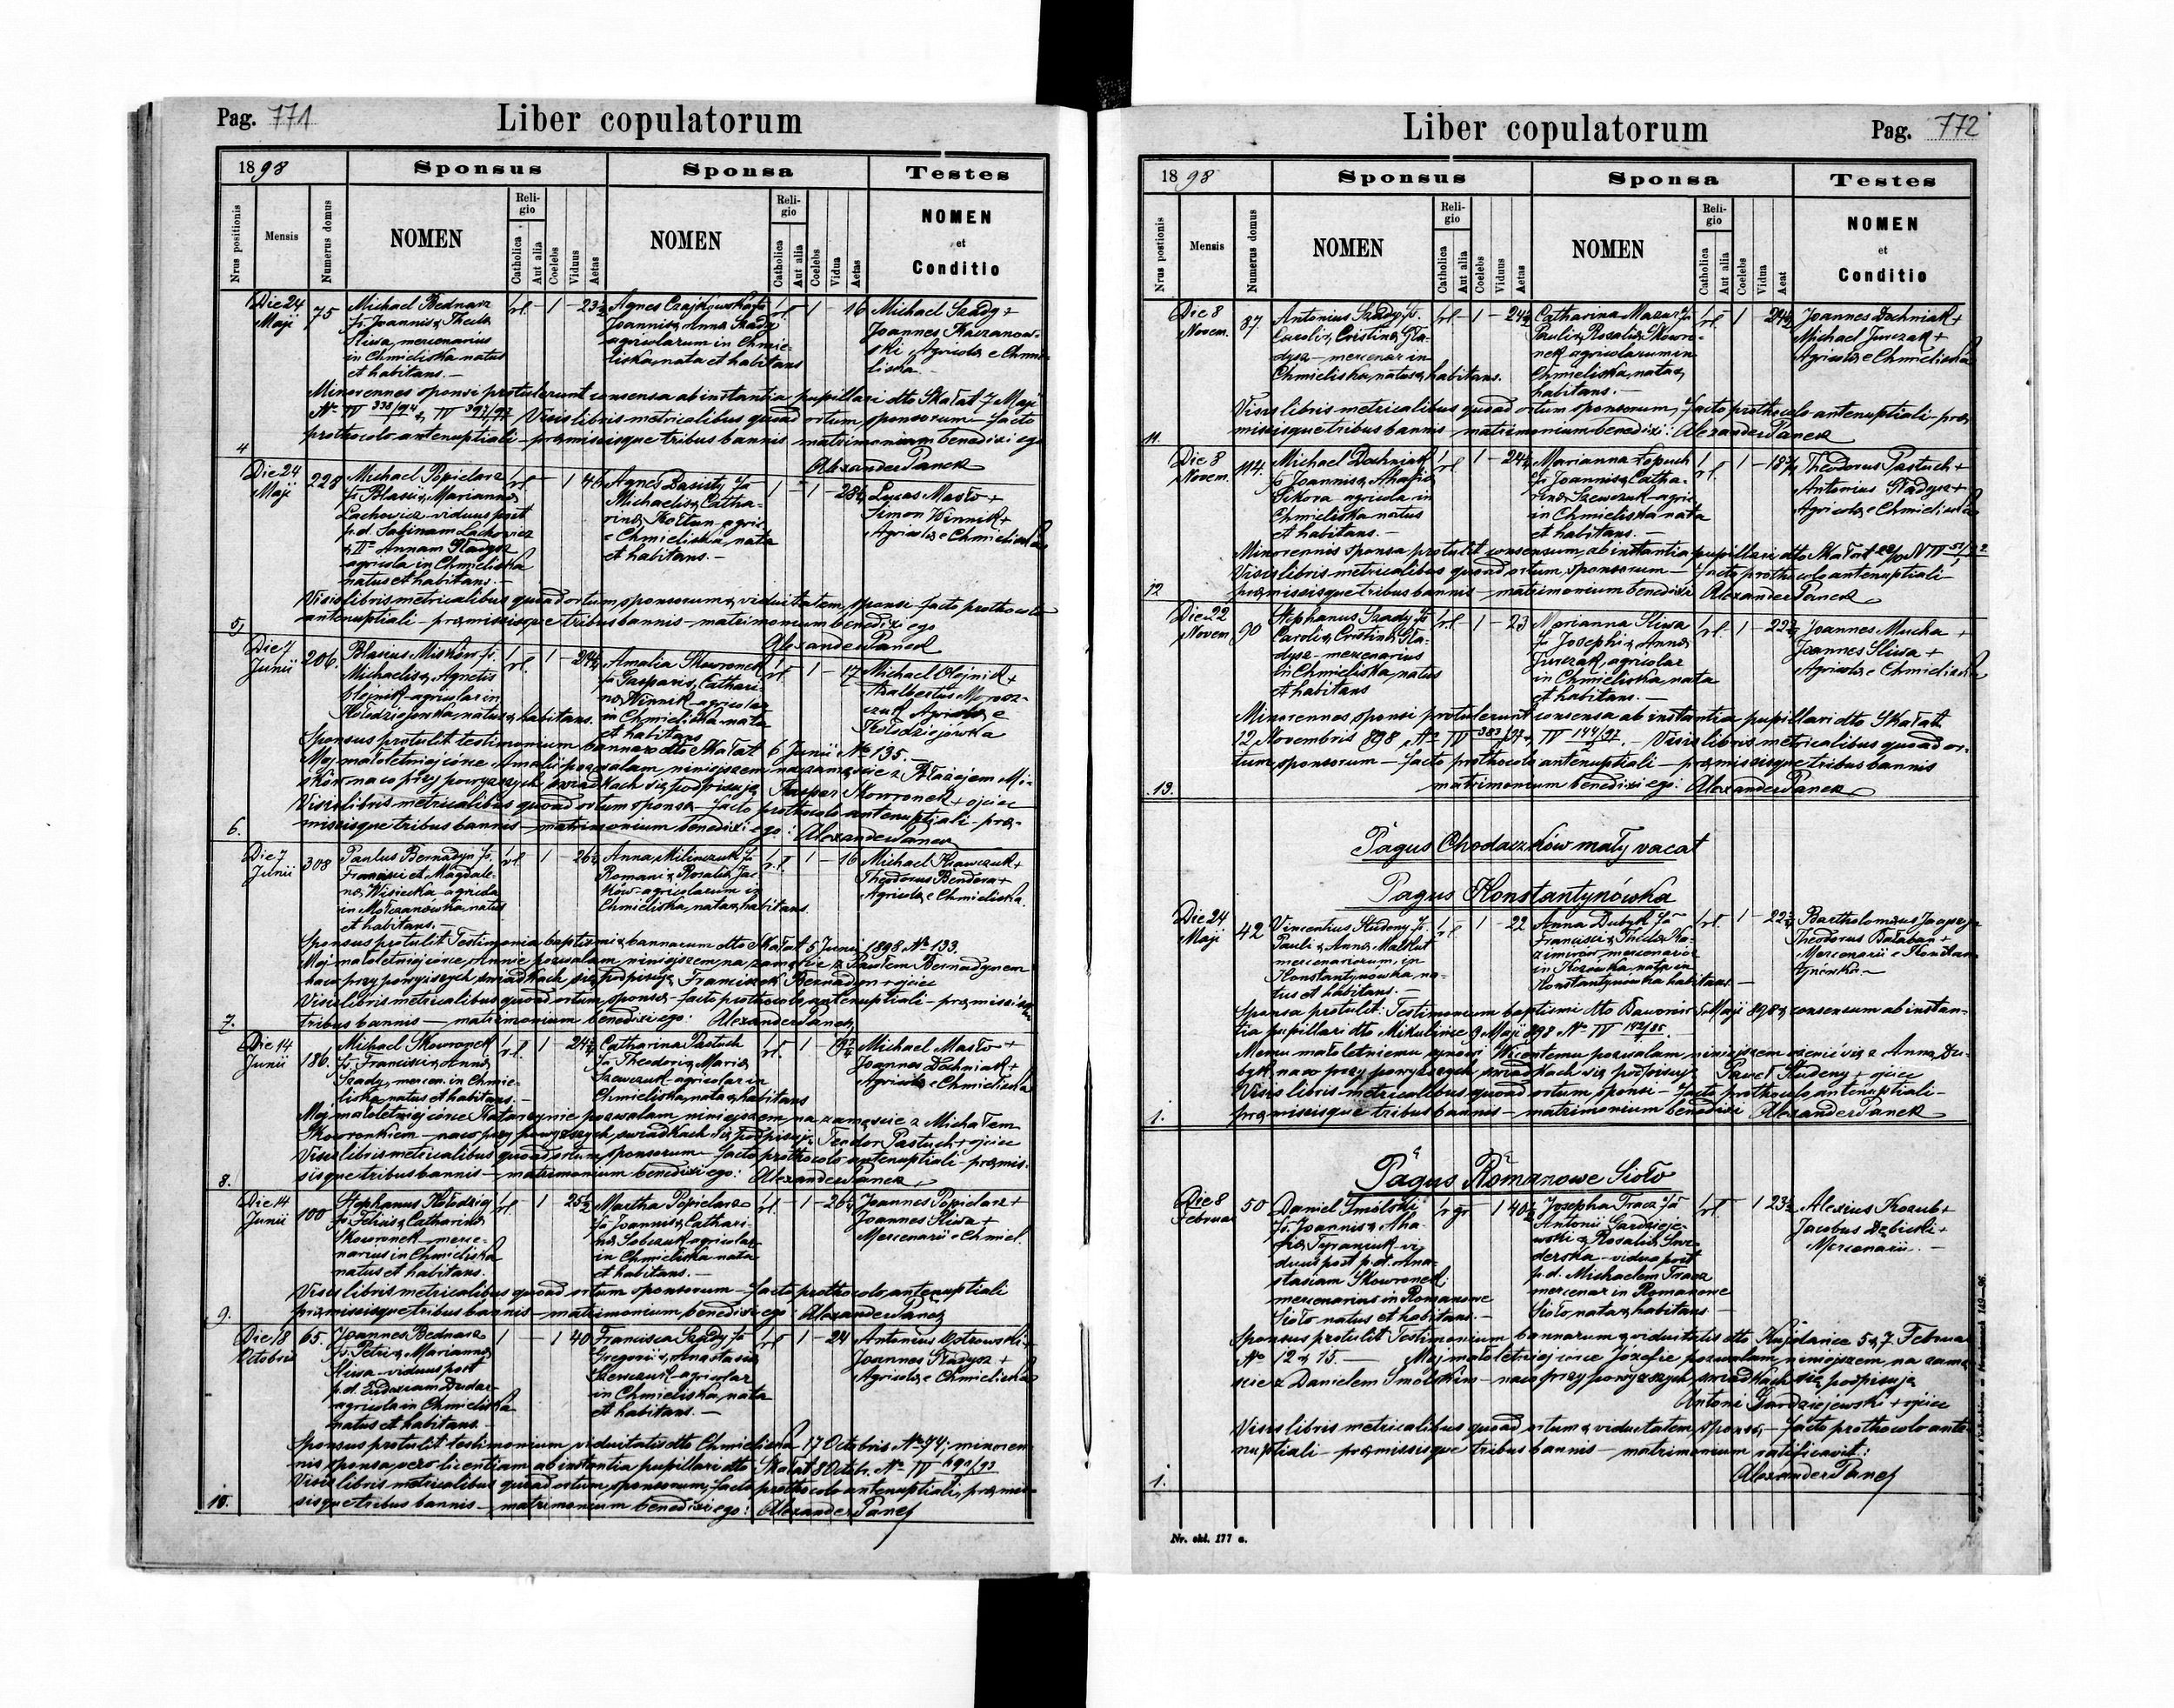 Pag. 771
Liber copulatorum
1898
Sponsus
Sponsa
Testes
Nrus positionis
Mensis
Numerus domus
NOMEN
Religio
Catholica
Aut alia
Coelebs
Viduus
Aetas
NOMEN
Religio
Catholica
Aut alia
Coelebs
Vidua
Aetas
NOMEN
et
Conditio
4
Die 24
Maji
75
Michael Bednarz
fs. Joannis & Thecla
Sliwa, mercenarius
in Chmieliska natus
et habitans.—
rl. 1 – 23
Agnes Czajkowska fa
Joannis & Anna Szady
agricolarum in Chmie-
liska, nata et habitans
rl 1 16
Michael Szady +
Joannes Kaczanow-
ski, Agricolæ e Chmie-
liska.
Minorennes sponsi protulerunt consensa ab instantia pupillari dto Skałat 7 Maji
No IV 338/94 & IV 397/97 Visis libris metricalibus quoad ortum sponsorum – facto
prothocolo antenuptiali – præmissisque tribus bannis – matrimonium benedixi ego
Alexander Panek
5
Die 24
Maji
228
Michael Popielarz
fs. Blasii & Marianna
Lachowicz – viduus post
p.d. Sabinam Lachowicz
& IIo Annam Gładysz
agricola in Chmieliska
natus et habitans.—
rl – 1 46
Agnes Basisty fa
Michaelis & Catha-
rina Kołtun agric.
e Chmieliska, nata
et habitans.—
1 – 1 28½
Lucas Masło +
Simon Winnik +
Agricolæ e Chmieliska
Visis libris metricalibus quoad ortum sponsorum & viduitatem sponsi – facto prothocolo
antenuptiali – præmissisque tribus bannis – matrimonium benedixi ego
Alexander Panek
6.
Die 7
Junii
206.
Blasius Misków fs.
Michaelis & Agnetis
Olejnik – agricolar in
Kołodziejówka, natus & habitans.
rl. 1 – 24
Amalia Skowronek
fa Gasparis & Cathari-
na Winnik – agricolar
in Chmieliska nata
et habitans
rl 1 – 17
Michael Olejnik +
Adalbertus Moroz-
czuk Agricolæ e
Kołodziejówka
Sponsus protulit testimonium bannar dto Skałat 6 Junii No 135.—
Mej małoletniej córce Amalii pozwalam niniejszem na zamęście z Błażejem Mi-
sków na co przy powyższych świadkach się podpisuję Kasper Skowronek + ojciec
Visis libris metricalibus quoad ortum sponsæ – facto prothocolo antenuptiali – præ-
missisque tribus bannis – matrimonium benedixi ego: Alexander Panek
7.
Die 7
Junii
308
Paulus Bernadyn fs.
Francisci et Magdale-
na Wisiecka – agricola
in Mołczanówka, natus
et habitans.—
rl. 1 26
Anna Milinczuk fa
Romani & Rosalia Jac-
ków – agricolarum in
Chmieliska, nata & habitans
rl. 1 – 16
Michael Krawczuk +
Theodorus Bendera +
Agricolæ e Chmieliska.
Sponsus protulit Testimonia baptismi & bannarum dto Skałat 5 Junii 1898 No 133.
Mej małoletniej córce Annie pozwalam niniejszem na zamęście z Pawłem Bernadynem
na co przy powyższych świadkach się podpisuję Franciszek Bernadyn + ojciec
Visis libris metricalibus quoad ortum sponsæ – facto prothocolo antenuptiali – præmissisque
tribus bannis — matrimonium benedixi ego: Alexander Panek
8.
Die 14
Junii
186.
Michael Skowronek
fs. Francisci & Anna
Szady, mercen. in Chmie-
liska, natus et habitans.—
rl. 1 – 24
Catharina Pastuch
fa Theodori & Maria
Szewczuk – agricolar in
Chmieliska, nata & habitans
rl. 1
Michael Masło +
Joannes Dochniak +
Agricolæ e Chmieliska
Mej małoletniej córce Katarzynie pozwalam niniejszem na zamęście z Michałem
Skowronkiem – na co przy powyższych świadkach się podpisuję Teodor Pastuch + ojciec
Visis libris metricalibus quoad ortum sponsorum – facto prothocolo antenuptiali – præmis-
sisque tribus bannis — matrimonium benedixi ego: Alexander Panek
9.
Die 14
Junii
100
Stephanus Kołodziej
fs. Felicis & Catharina
Skowronek – merce-
narius in Chmieliska
natus et habitans.
rl. 1 25
Martha Popielarz
fa Joannis & Cathari-
na Sobczuk – agricolar
in Chmieliska nata
et habitans.—
rl. – 1 – 26
Joannes Popielarz +
Joannes Sliwa +
Mercenarii e Chmiel.
Visis libris metricalibus quoad ortum sponsorum – facto prothocolo antenuptiali
præmissisque tribus bannis – matrimonium benedixi ego: Alexander Panek
10.
Die 18
Octobris
65.
Joannes Bednarz
fs. Petri & Marianna
Sliwa – viduus post
p.d. Eudoxiam Dudar –
agricola in Chmieliska
natus et habitans.
1 – 1 40
Francisca Szady fa
Gregorii & Anastasia
Szewczuk – agricolar
in Chmieliska, nata
et habitans.—
rl 1 – 24
Antonius Ostrowski +
Joannes Gładysz +
Agricolæ e Chmieliska
Sponsus protulit testimonium viduitatis dto Chmieliska 17 Octobris No 74; minoren-
nis sponsa vero licentiam ab instantia pupillari dto Skałat 8 Octobr. No IV
Visis libris metricalibus quoad ortum sponsorum, facto prothocolo antenuptiali, præmis-
sisque tribus bannis – matrimonium benedixi ego: Alexander Panek
Liber copulatorum
Pag. 772
1898
Sponsus
Sponsa
Testes
Nrus postionis
Mensis
Numerus domus
NOMEN
Religio
Catholica
Aut alia
Coelebs
Viduus
Aetas
NOMEN
Religio
Catholica
Aut alia
Coelebs
Vidua
Aeat
NOMEN
et
Conditio
11.
Die 8
Novem.
87
Antonius Szady fs.
Caroli & Cristina Gła-
dysz – mercenar in
Chmieliska, natus & habitans.
rl – 1 – 24
Catharina Mazur fa
Pauli & Rosalia Skowro-
nek agricolarum in
Chmieliska, nata &
habitans.—
rl. 1
Joannes Dochniak +
Michael Jurczak +
Agricolæ e Chmieliska
Visis libris metricalibus quoad ortum sponsorum, facto prothocolo antenuptiali – præ-
missisque tribus bannis – matrimonium benedixi: Alexander Panek
12
Die 8
Novem.
114.
Michael Dochniak
fs. Joannis & Ahafia
Sikora agricola in
Chmieliska natus
et habitans.—
rl 1 – 24
Marianna Łopuch
fa Joannis & Catha-
rina Szewczuk – agric.
in Chmieliska nata
et habitans.—
rl. 1 – 18
Theodorus Pastuch +
Antonius Gładysz +
Agricolæ e Chmieliska
Minorennis sponsa protulit consensum ab instantia pupillari dto Skałat
Visis libris metricalibus quoad ortum sponsorum – facto prothocolo antenuptiali –
præmissisque tribus bannis – matrimonium benedixi Alexander Panek
13.
Die 22
Novem.
90
Stephanus Szady fs.
Caroli & Cristina Gła-
dysz – mercenarius
in Chmieliska, natus
et habitans
rl – 1 – 23
Marianna Sliwa
fa Josephi & Anna
Jurczak, agricolar
in Chmieliska, nata
et habitans.—
rl. – 1 – 22
Joannes Mucha +
Joannes Sliwa +
Agricolæ e Chmieliska
Minorennes sponsi protulerunt consensa ab instantia pupillari dto Skałat
12 Novembris 898 No IV 383/97 & IV 144/97.— Visis libris metricalibus quoad or-
tum sponsorum – facto prothocolo antenuptiali – præmissisque tribus bannis
matrimonium benedixi ego: Alexander Panek
Pagus Chodaczków mały vacat
Pagus Konstantynówka
1.
Die 24
Maji
42
Vincentius Studeny fs.
Pauli & Anna
mercenariorum, in
Konstantynówka, na-
tus et habitans.—
rl – 1 – 22
Anna Dubyk fa
Francisci & Thecla Ka-
zimirów mercenarior
in Kozówka, nata in
Konstantynówka habitans.—
rl. 1 – 22
Bartholomæus
Theodorus Bałaban +
Mercenarii e Konstan-
tynówka —
Sponsa protulit: Testimonium baptismi dto 5 Maji 898 & consensum ab instan-
tia pupillari dto Mikulince 9 Maji 898 No IV
Memu małoletniemu synowi Wicentemu pozwalam niniejszem ożenić się z Anną Du-
byk, na co przy powyższych świadkach się podpisuję Paweł Studeny + ojciec
Visis libris metricalibus quoad ortum sponsi – facto prothocolo antenuptiali –
præmissisque tribus bannis – matrimonium benedixi Alexander Panek
Pagus Romanowe Sioło
1.
Die 8
Februar
50
Daniel Smolski
fs. Joannis & Aha-
fia Tyraniuk – vi-
duus post p.d. Ana-
stasiam Skowronek
mercenarius in Romanowe
Sioło natus et habitans.—
r gr 1 40½
Josepha Tracz fa
Antonii Gardzieje-
wski & Rosalia Swe-
derska – vidua post
p.d. Michaelem Tracz
mercenar in Romanowe
Sioło nata & habitans.—
rl. 1 23
Alexius Kozub +
Jacobus Dębicki +
Mercenarii.—
Sponsus protulit Testimonium bannarum & viduitatis dto Kujdańce 5 & 7 Februar
No 12 & 15.— Mej małoletniej córce Józefie pozwalam niniejszem na zamę-
ście z Danielem Smolskim – na co przy powyższych świadkach się podpisuję
Antoni Gardziejewski + ojciec
Visis libris metricalibus quoad ortum & viduitatem sponsæ – facto prothocolo ante-
nuptiali – præmissisque tribus bannis – matrimonium ratificavit:
Alexander Panek
Nr. okl. 177 a.